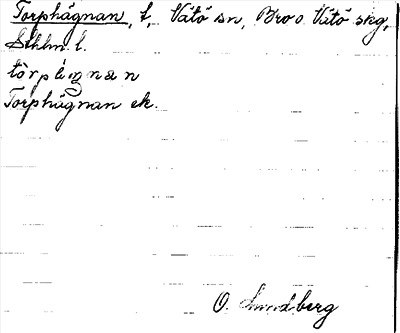 Torphägnan, t, Vätö sn, Bro o. Vätö skg,
Sthlm l.
Torphägnan ek.
O. Lundberg